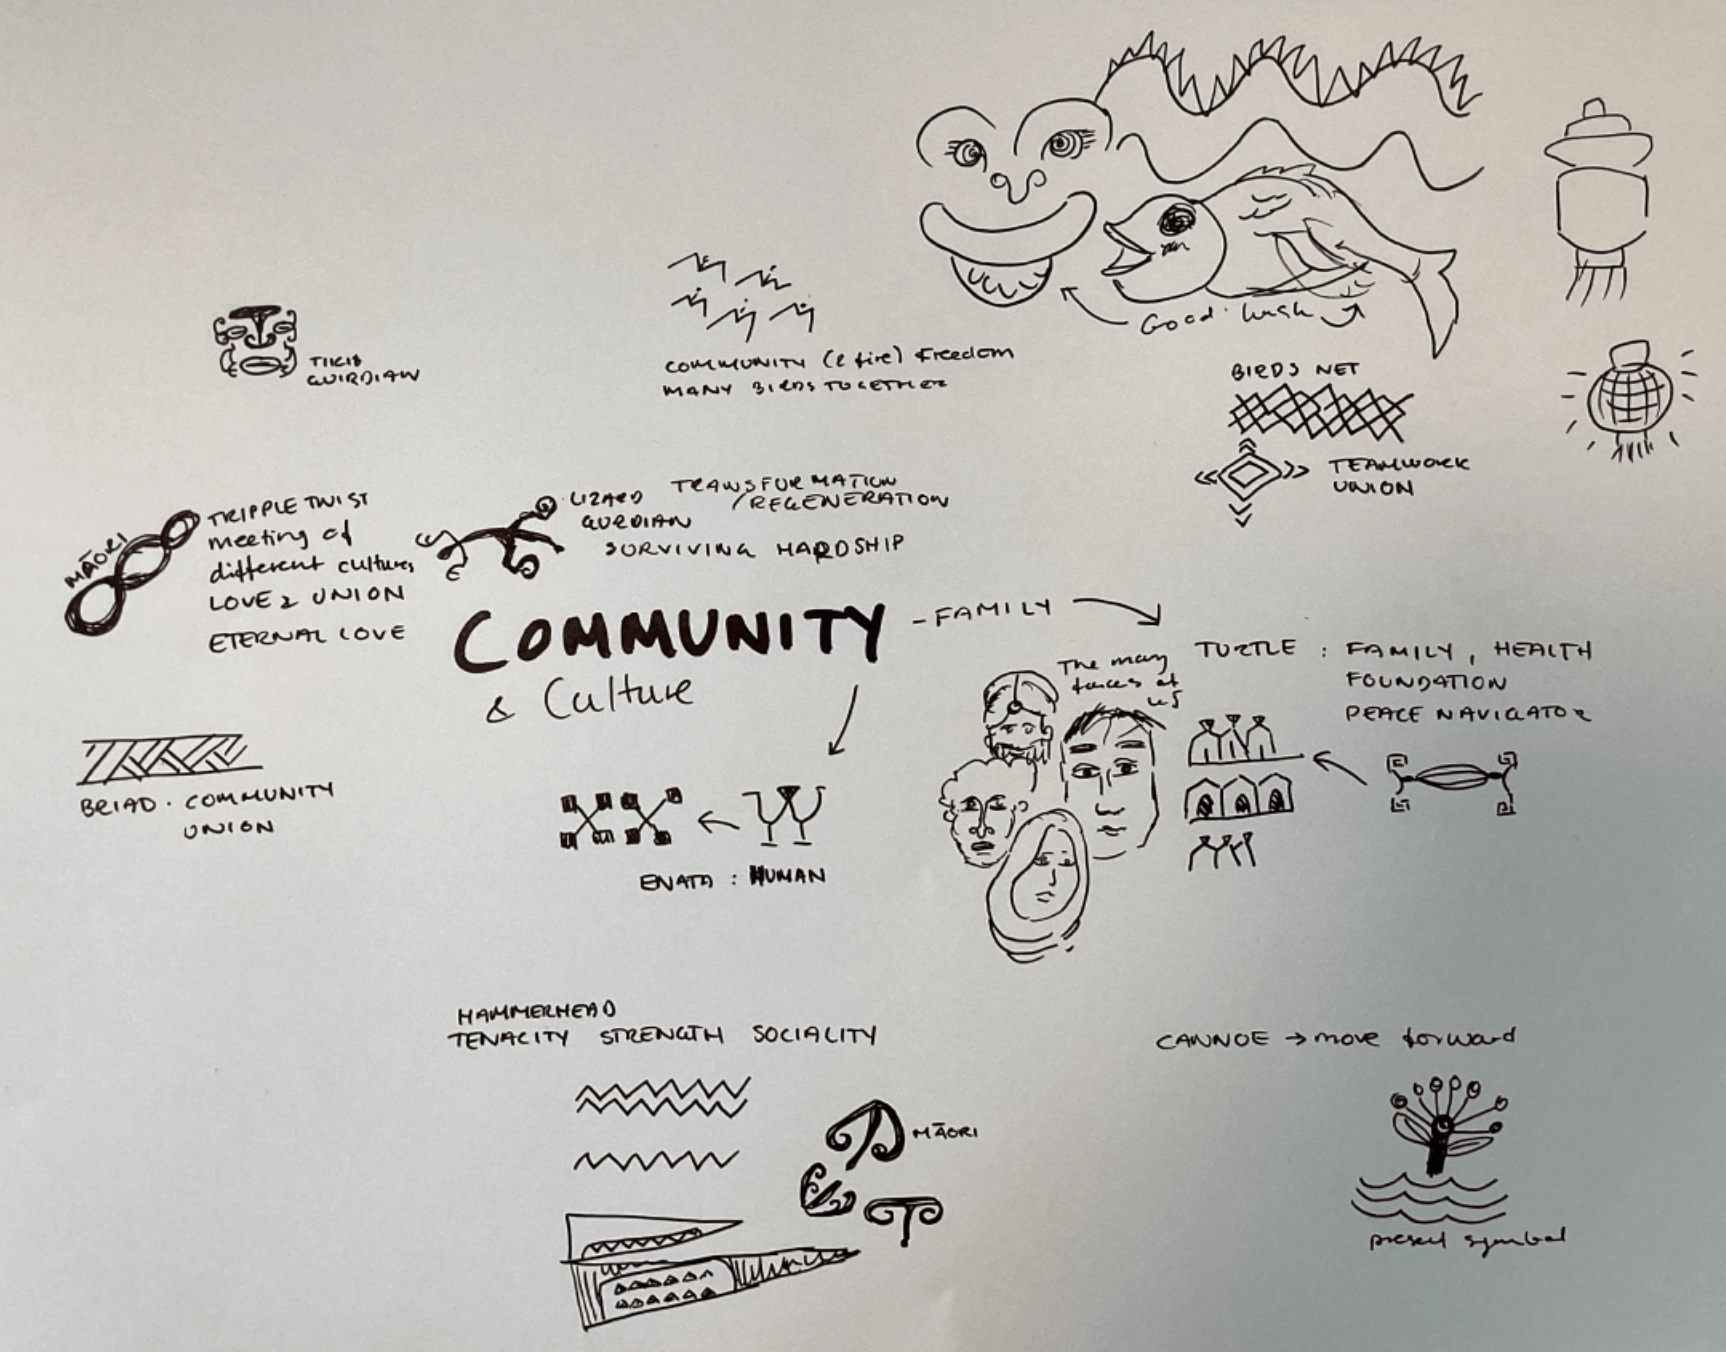 Good luck
TIKIS
GUIRDIAN
COMMUNITY (& fire) freedom
MANY BIRDS TOGETHER
BIRDS NET
TEAMWORK
UNION
MĀORI
TRIPPLE TWIST
meeting of
different cultures
LOVE & UNION
ETERNAL LOVE
LIZARD
GURDIAN
TRANSFORMATION
/REGENERATION
SURVIVING HARDSHIP
COMMUNITY
& Culture
- FAMILY
The many
faces of
us
TURTLE : FAMILY, HEALTH
FOUNDATION
PEACE NAVIGATOR
BRIAD . COMMUNITY
UNION
ENATA : HUMAN
HAMMERHEAD
TENACITY STRENGTH SOCIALITY
MĀORI
CANNOE → move forward
symbol